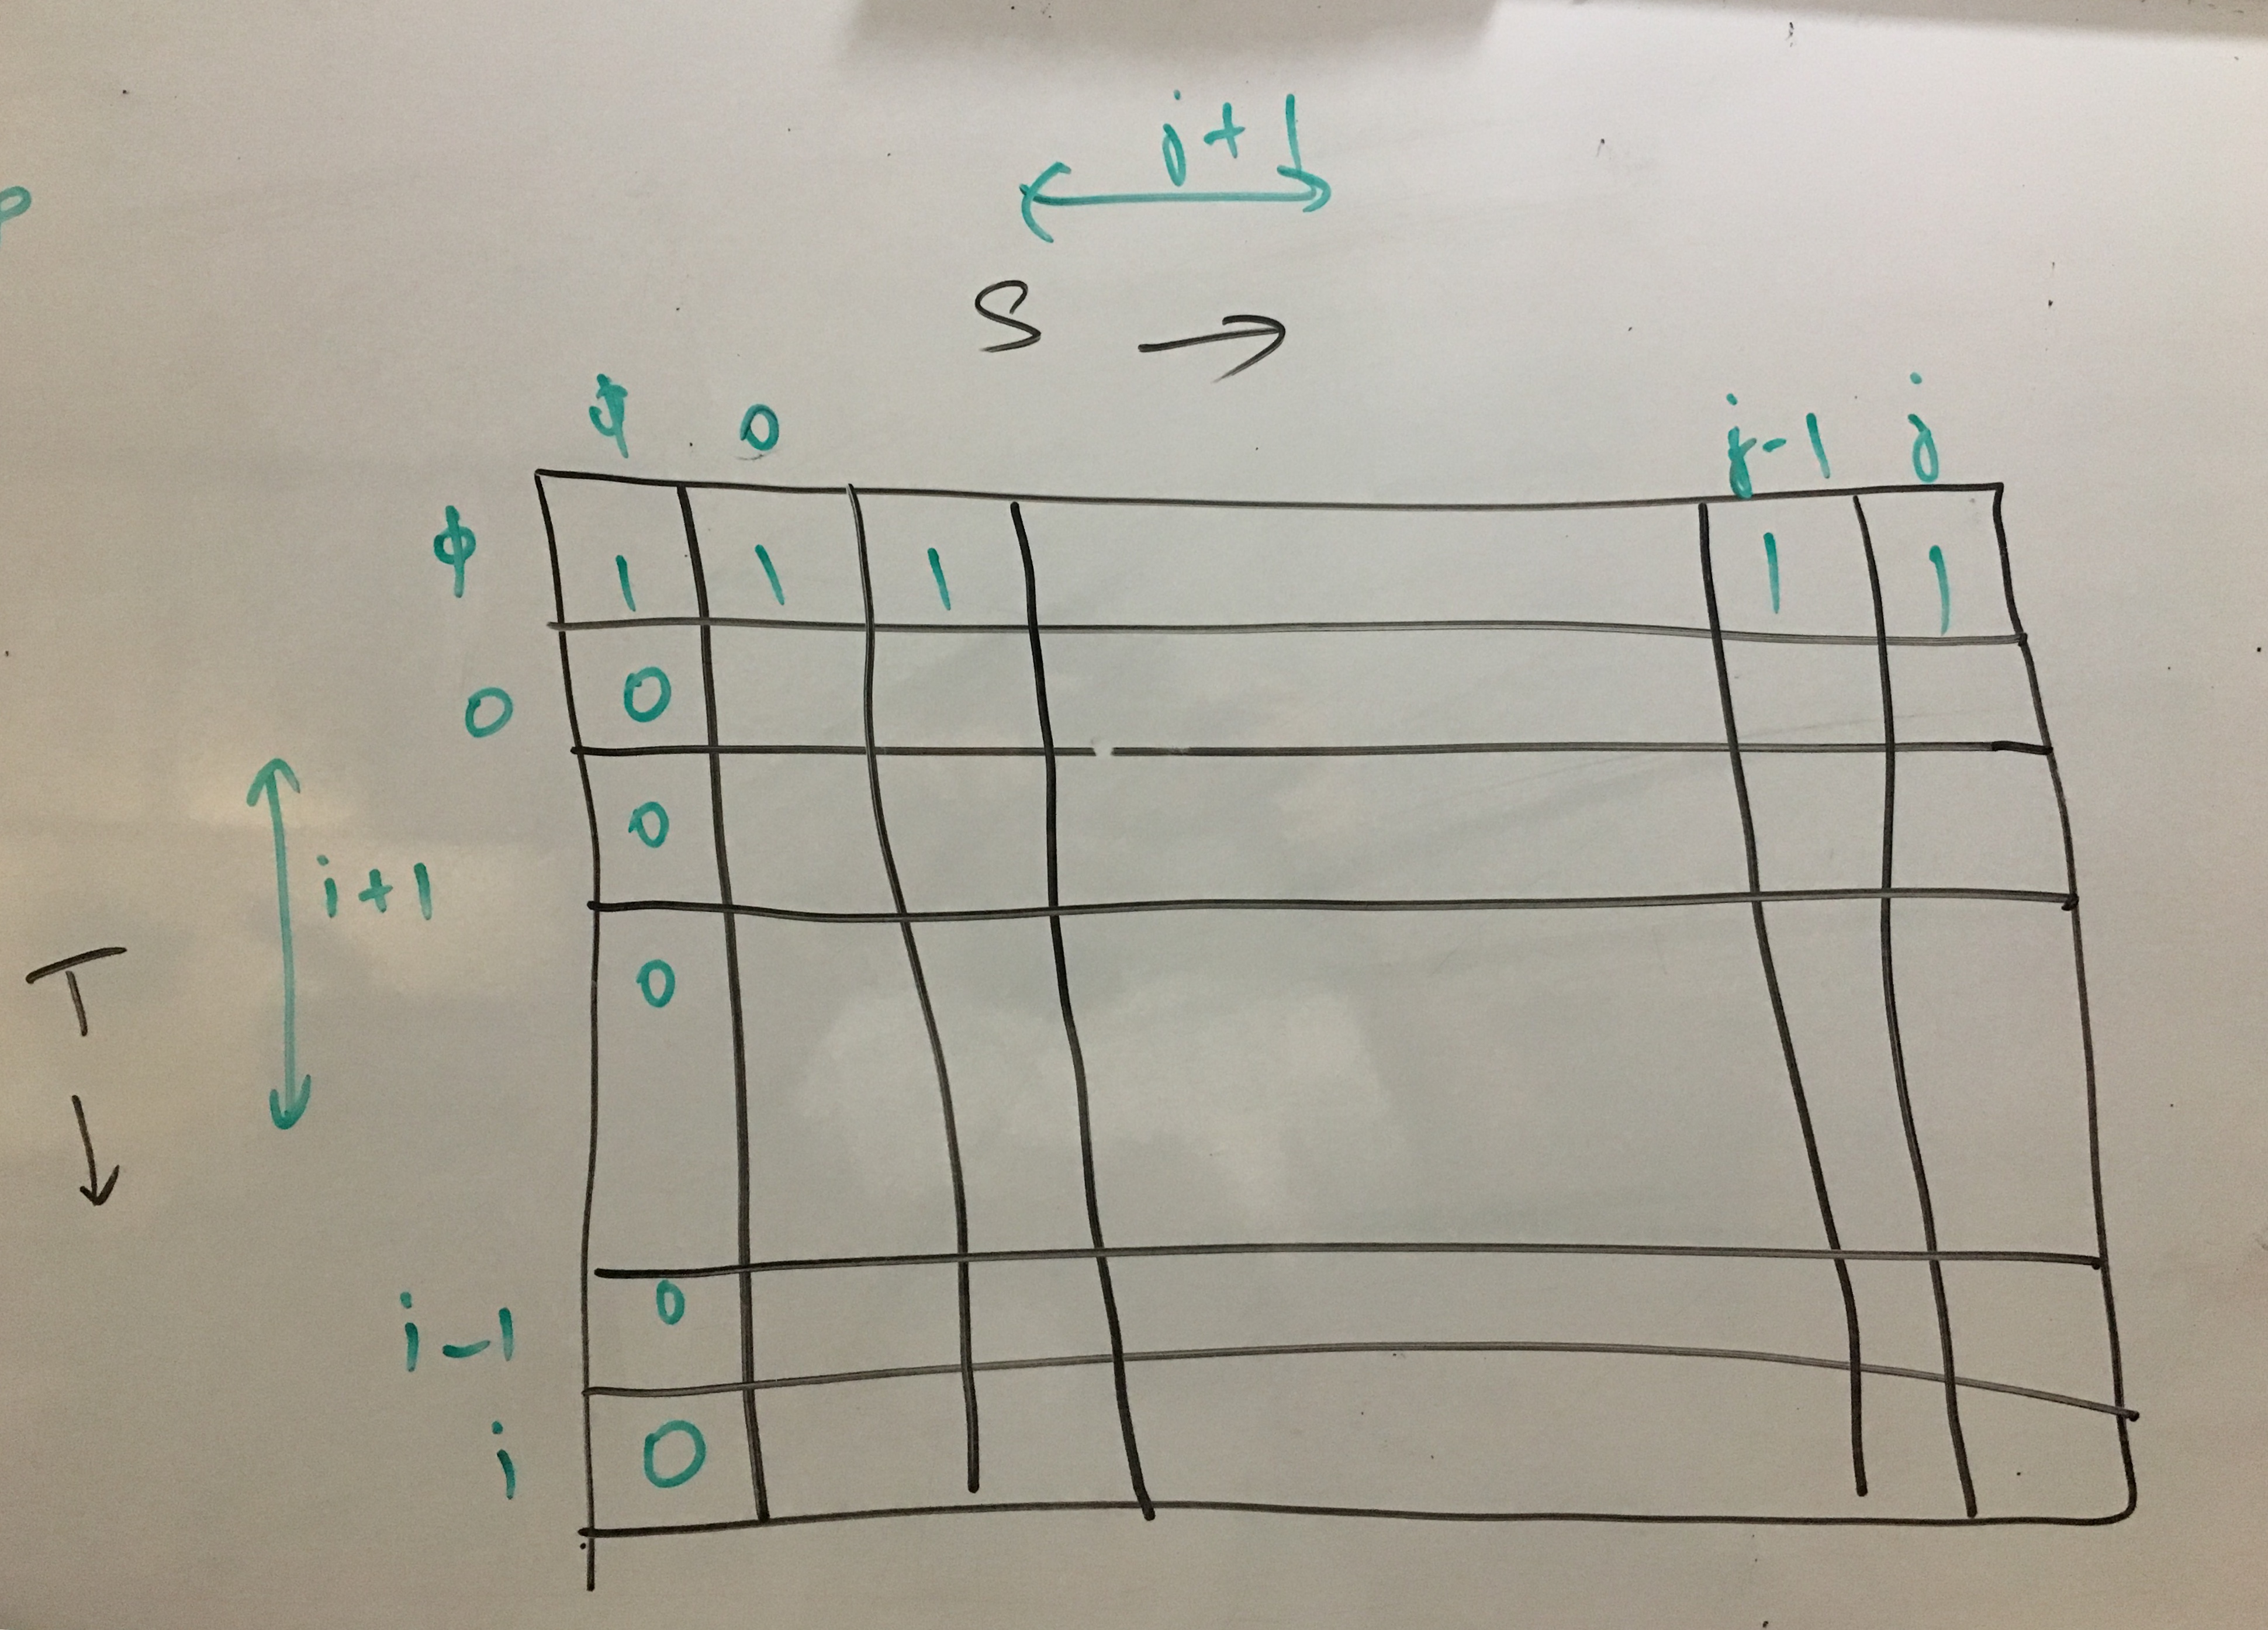 j+1
S →
ϕ 0 j-1 j
ϕ 1 1 1 1 1
0 0
0
i+1
T
↓
0
i-1 0
i 0